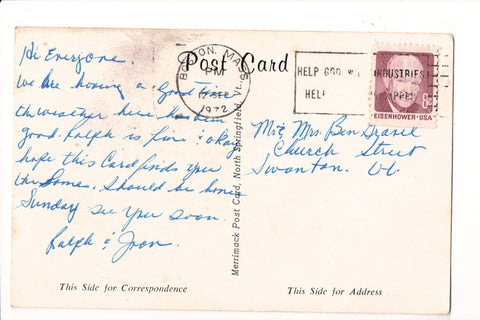 Post Card
BOSTON, MASS
PM
1972
HELP GOODWILL INDUSTRIES
HELP
8c
EISENHOWER·USA
Hi Everyone.
We are having a Good time
the weather here has been
good. Ralph is fine & okay
hope this Card finds you
the Same. Should be home
Sunday see you soon.
Ralph &
Mr & Mrs. Ben
Church Street
Swanton. Vt
Merrimack Post Card, North Springfield, Vt.
This Side for Correspondence
This Side for Address